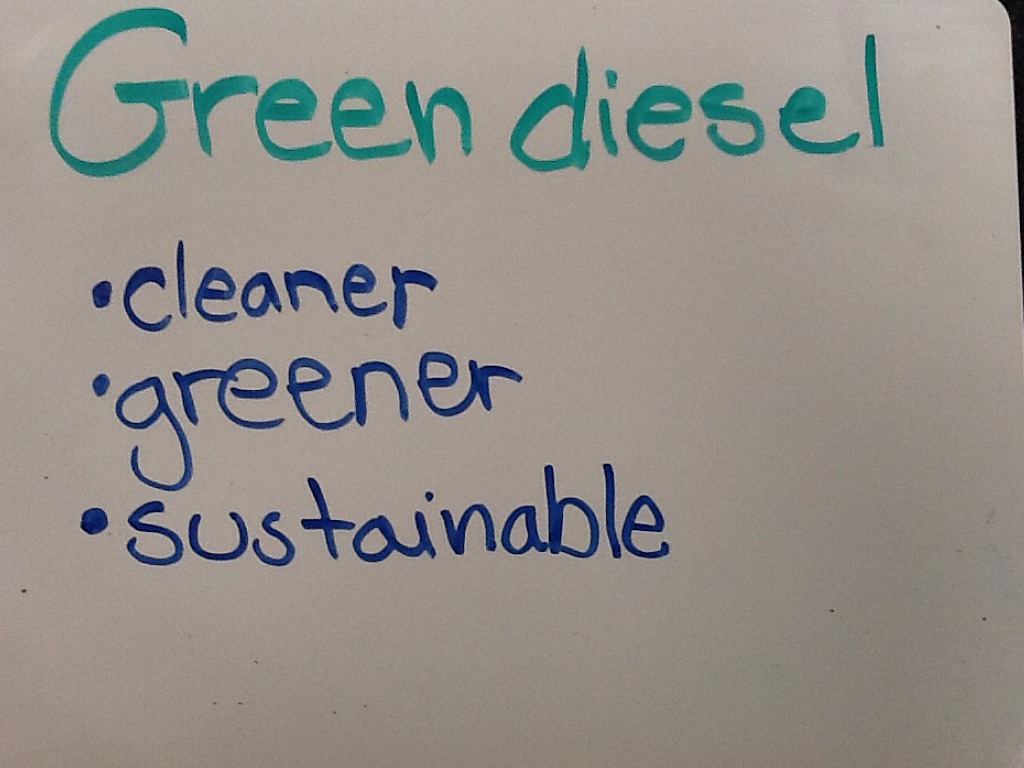 Green diesel
•cleaner
•greener
•sustainable